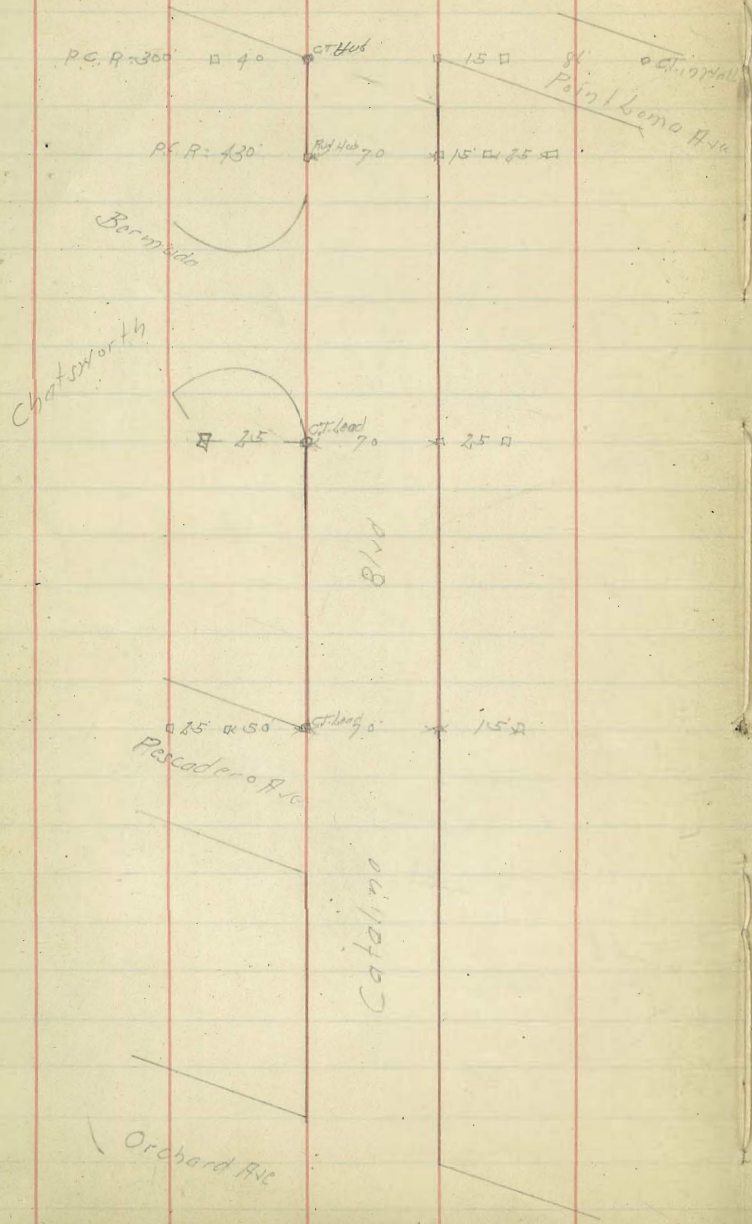 P.C. R=300' 40 C.T. Hub 15 81 C.T. in Wall
Point Loma Ave
P.C. R=430' Hub 70 15 25
Bermuda
Chatsworth
25 C.T. Lead 70 25
Blvd
25 50 C.T. Lead 70 15
Pescadero Ave
Catalina
Orchard Ave